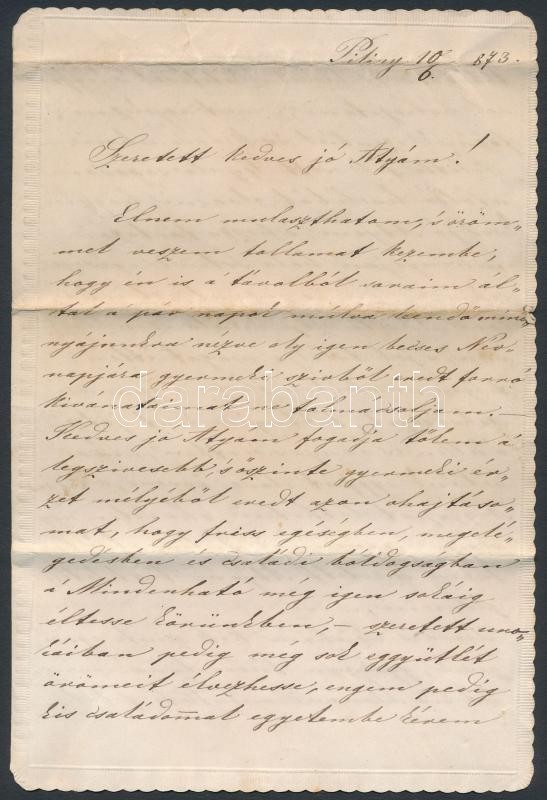 Piliny 10/6. 873.
Szeretett kedves jó Atyám!
Elnem mulaszthatom, s öröm„
mel veszem tollamat kezembe,
hogy én is á távolból soraim ál„
tal á pár napok múlva leendő mind„
nyájunkra nézve oly igen becses Név„
napjára gyermeki szivből eredt forró
kivánataimat ne tolmácsoljam. –
Kedves jó Atyám fogadja tőlem á
legszivesebb, s őszinte gyermeki ér„
zet mélyéből eredt azon ohajtáso„
mat, hogy friss egéségben, megelé„
gedésben és családi boldogságban
á Mindenható még igen sokáig
éltesse körünkben, – szeretett uno„
káiban pedig még sok eggyütlét
örömeit élvezhesse, engem pedig
kis családommal egyetembe kérem
darabanth